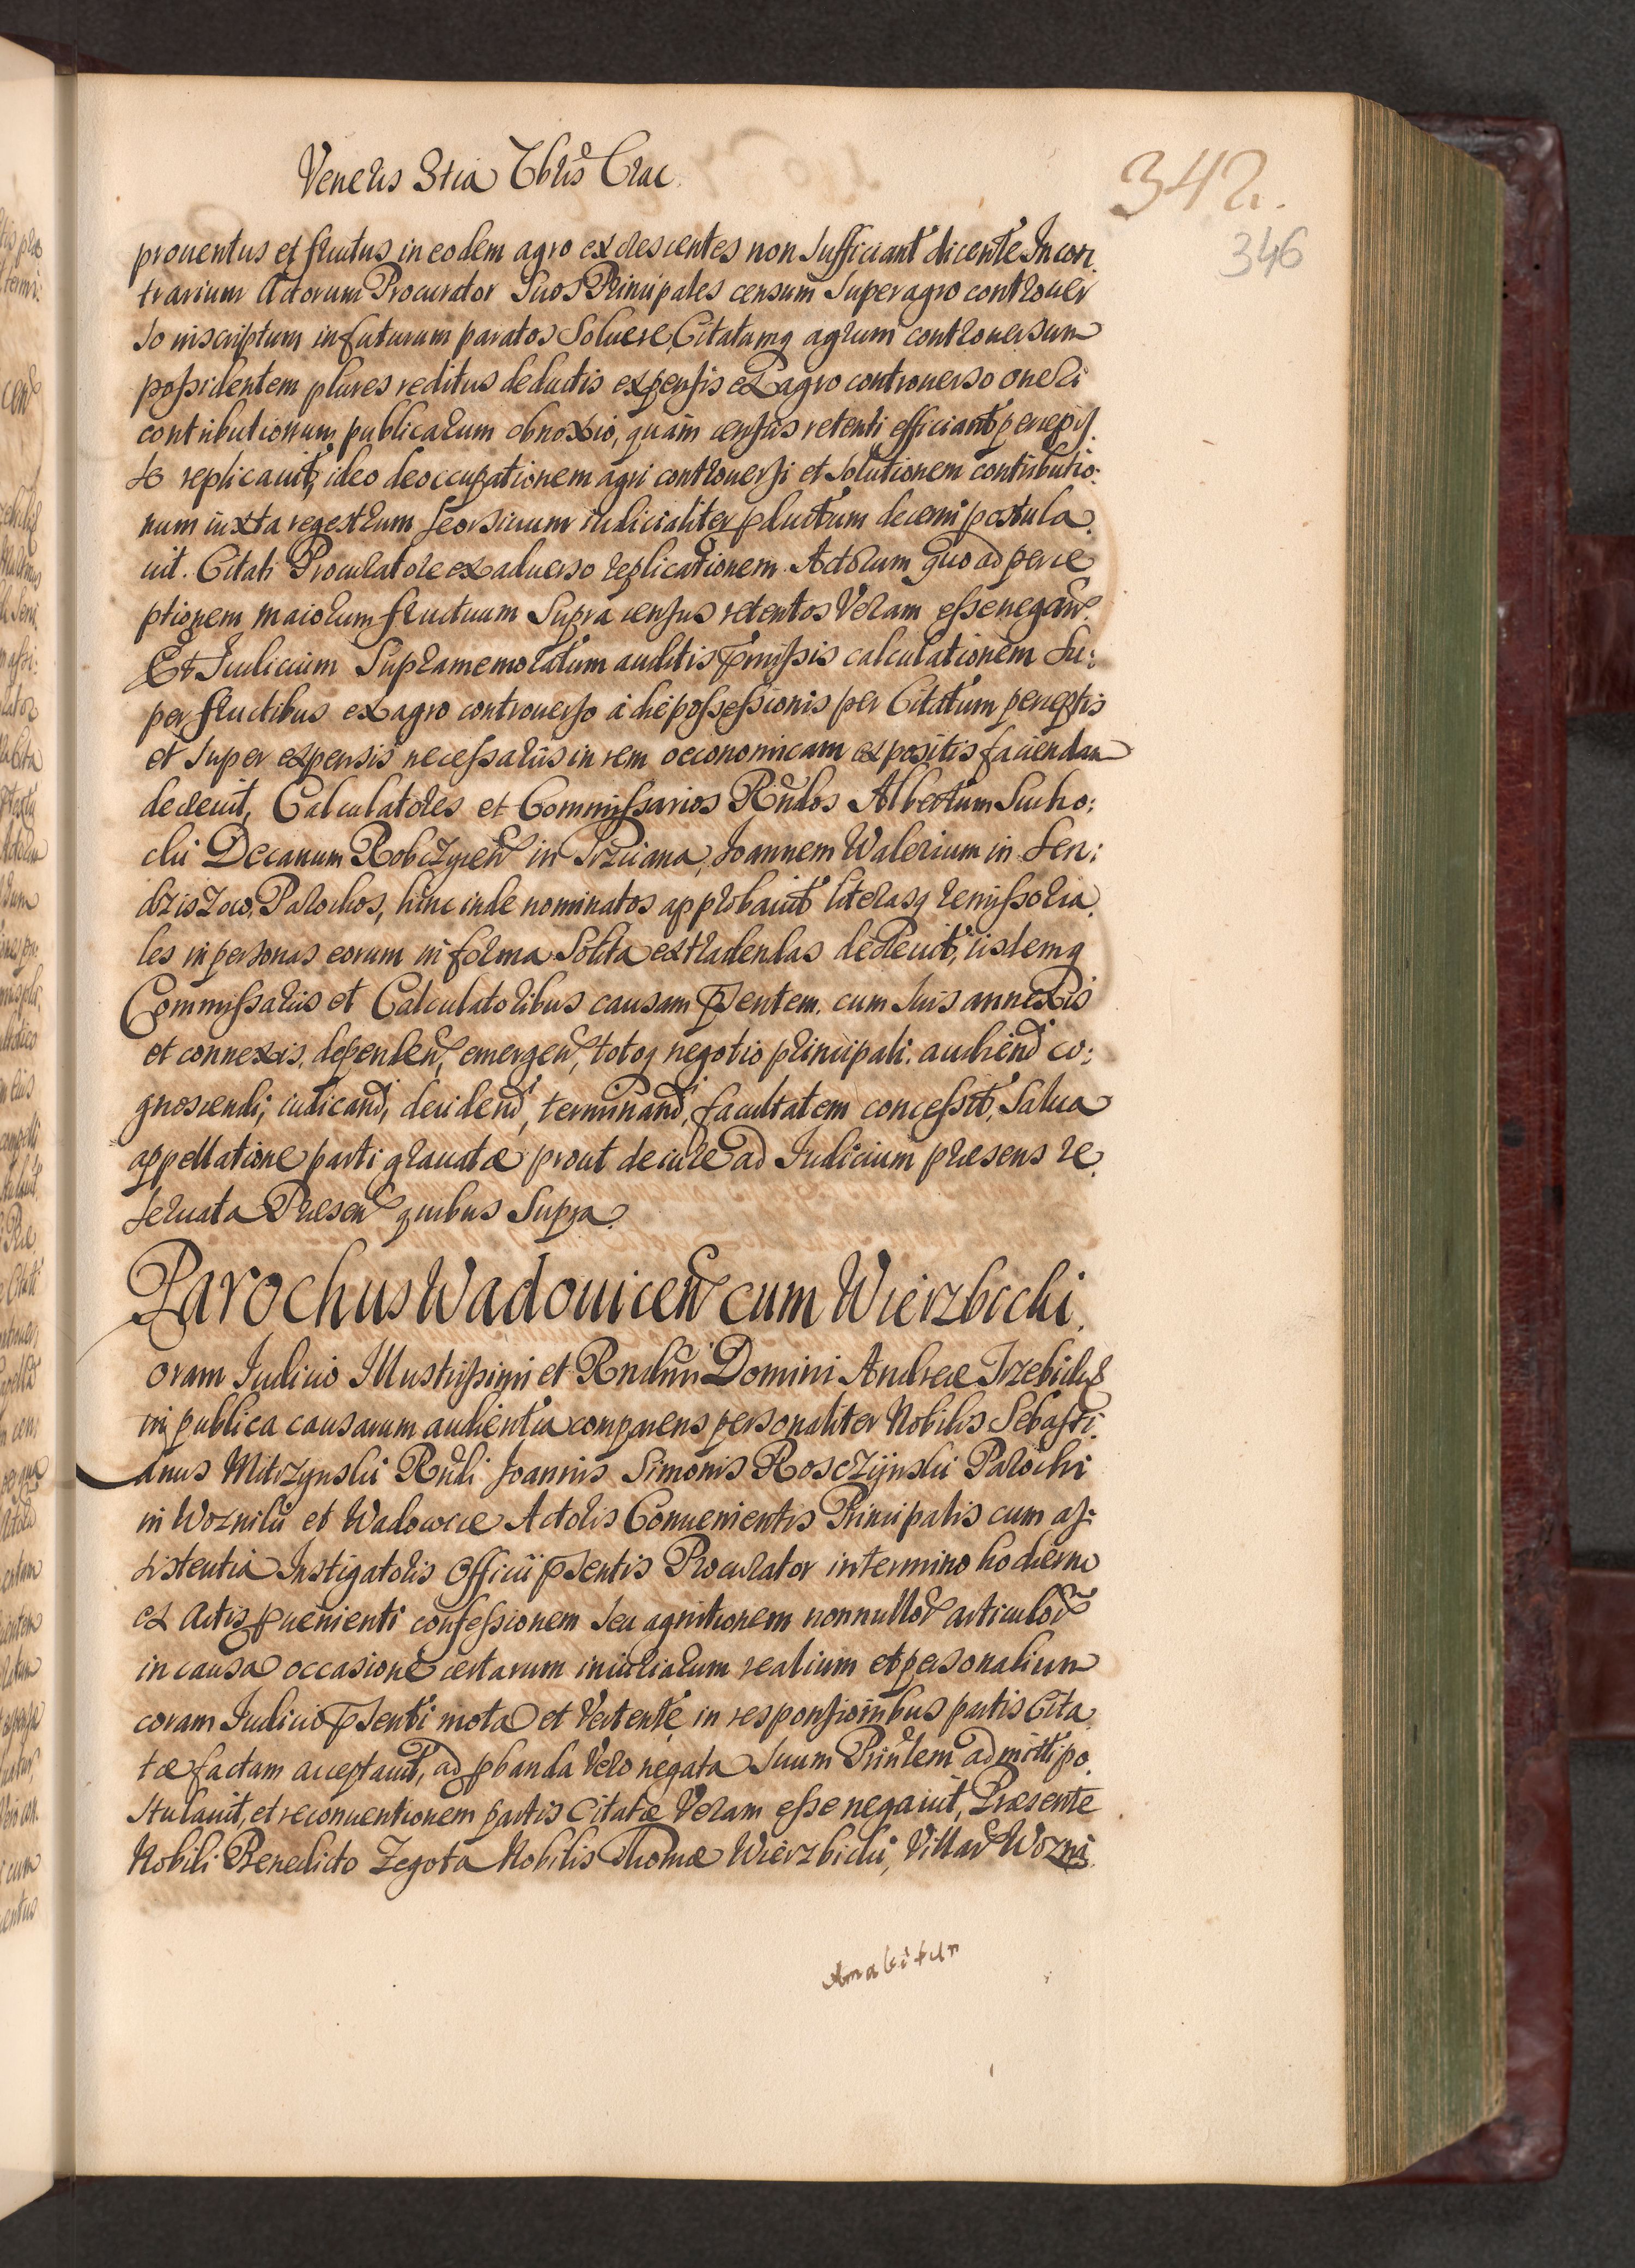 Veneris 3tia Xbris Crac.
342.
346
prouentus et fructus in eodem agro excrescentes non sufficiant dicente In con
trarium Actorum Procurator suos Principales censum super agro controuer
so inscriptum in futurum paratos soluere, Citatumq agrum controuersum
possidentem plures reditus deductis expensis ex agro controuerso oneri
contributionum publicarum obnoxio, quam census retenti efficiant percepis
se replicauit, ideo deoccupationem agri controuersi et solutionem contributio:
num iuxta regestrum seorsiuum iudicialiter pductum decerni postula
uit. Citati Procuratore ex aduerso replicationem Actorum quo ad perce
ptionem maiorum fructuum supra census retentos Veram esse negan.
Et Iudicium Supramemoratum auditis pmissis calculationem su:
per fructibus ex agro controuerso à die possessionis per Citatum perceptis
et super expensis necessariis in rem oeconomicam expositis faciendam
decreuit, Calculatores et Commissarios Rndos Albertum Sucho:
cki Decanum Robczycen in Trzciana, Joannem Walerium in Sen:
dziszow, Parochos, hinc inde nominatos approbauit literasq remissoria
les in personas eorum in forma Solita extradendas decreuit, iisdemq
Commissariis et Calculatoribus causam psentem cum suis annexis
et connexis, dependen, emergen, totoq negotio principali audiend co:
gnoscendi, iudicand, decidend, terminand, facultatem concessit, Salua
appellatione parti grauatæ prout de iure ad Iudicium præsens re
seruata Præsen quibus Supra.
Parochus Wadouicen cum Wierzbicki.
oram Iudicio Illustrissimi et Rndmi Domini Andreæ Trzebicki
in publica causarum audientia comparens personaliter Nobilis Sebasti:
anus Mitczynski Rndi Joannis Simonis Rosczÿnski Parochi
in Woznikij et Wadowice Actoris Conuenientis Principalis cum as:
sistentia Instigatoris Officii psentis Procurator in termino hodierno
ex actis pueniente confessionem seu agnitionem nonnullor articulor
in causa occasione certarum iniuriarum realium et personalium
coram Iudicio psenti mota et Vertente, in responsionibus partis Cita
tæ factam acceptauit, ad pbanda Vero negata suum Prinlem admitti po
stulauit, et reconuentionem partis Citatæ Veram esse negauit, Præsente
Nobili Benedicto Zegota Nobilis Thomæ Wierzbicki, Villar Wozni
Amabitur